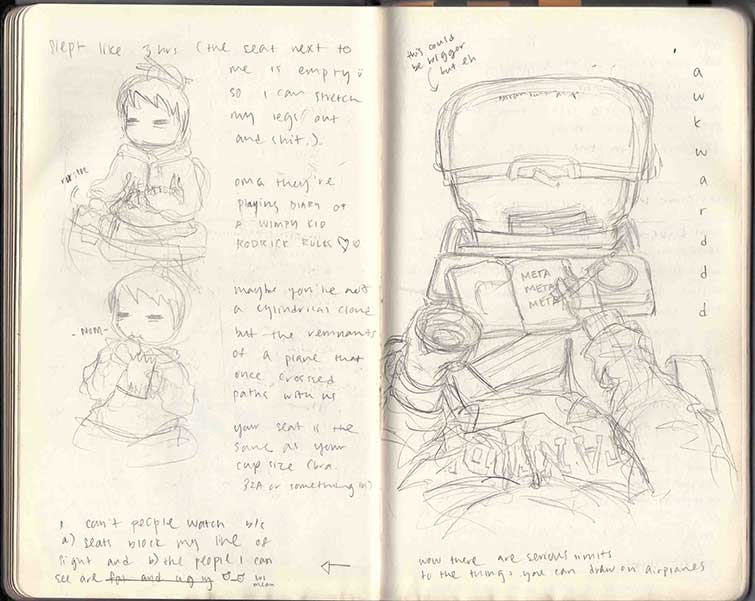 slept like 3 hrs (the seat next to
me is empty
so I can stretch
my legs out
and shit.)
omg they're
playing DIARY OF
A WIMPY KID
RODRICK RULES
maybe you're not
a cylindrical cloud
but the remnants
of a plane that
once crossed
paths with us
- NOM -
your seat is the
same as your
cup size (bra.
32A or something lol)
I can't people watch b/c
a) seats block my line of
sight and b) the people I can
see are fat and ugly
mean
this could
be bigger
but eh
awkwarddd
META
META
META
now there are serious limits
to the things you can draw on airplanes